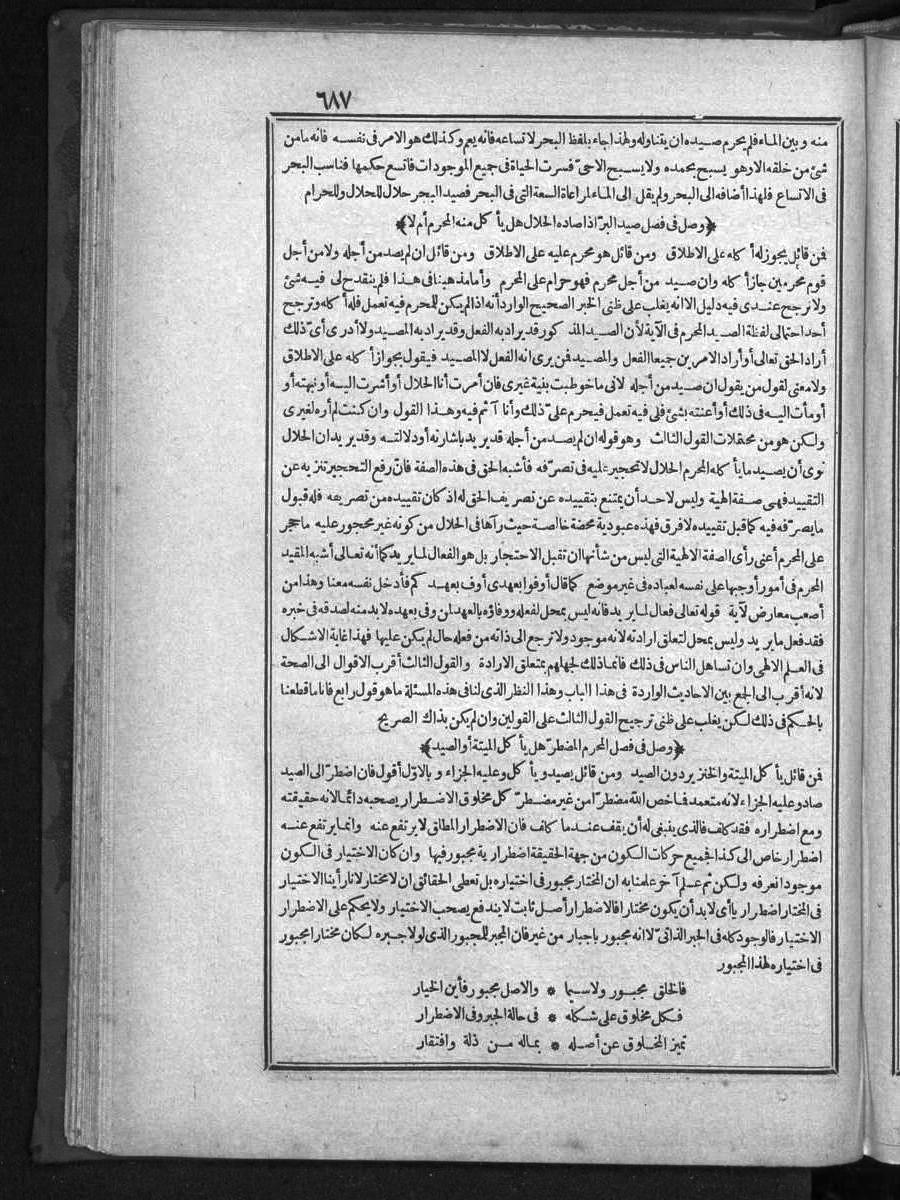 ٦٨٧
منه وبين الماء فلم يحرم صيده ان يتناوله ولهذا جاء بلفظ البحر لاتساعه فانه يعم وكذلك هو الامر فى نفسه فانه ما من
شئ من خلقه الا وهو يسبح بحمده ولا يسبح الا حىّ فسرت الحياة فى جميع الموجودات فاتسع حكمها فناسب البحر
فى الاتساع فلهذا أضافه الى البحر ولم يقل الى الماء لمراعاة السعة التى فى البحر فصيد البحر حلال للحلال وللحرام
﴿وصل فى فصل صيد البرّ اذا صاده الحلال هل يأكل منه المحرم أم لا﴾
فن قائل يجوز له أكله على الاطلاق ومن قائل هو محرم عليه على الاطلاق ومن قائل ان لم يصد من أجله ولا من أجل
قوم محرمين جاز أكله وان صيد من أجل محرم فهو حرام على المحرم وأما مذهبنا فى هذا فلم ينقدح لى فيه شئ
ولا ترجح عندى فيه دليل الا انه يغلب على ظنى الخبر الصحيح الوارد أنه اذا لم يكن للمحرم فيه تعمل فله أكله وترجح
أحد احتمالى لفظة الصيد المحرم فى الآية لأن الصيد المذكور قد يراد به الفعل وقد يراد به المصيد ولا أدرى أىّ ذلك
أراد الحق تعالى أو أراد الامرين جميعا الفعل والمصيد فن يرى انه الفعل لا المصيد فيقول بجواز أكله على الاطلاق
ولا معنى لقول من يقول ان صيد من أجله لانى ما خوطبت بنية غيرى فان أمرت أنا الحلال أو أشرت اليه أو نبهته أو
أومأت اليه فى ذلك أو أعنته بشئ فلى فيه تعمل فيحرم علىّ ذلك وأنا آثم فيه وهذا القول وان كنت لم أره لغيرى
ولكن هو من محتملات القول الثالث وهو قوله ان لم يصد من أجله قد يريد باشارته أو دلالته وقد يريد ان الحلال
نوى أن يصيد ما يأكله المحرم الحلال لا تحجير عليه فى تصرّفه فأشبه الحق فى هذه الصفة فانّ رفع التحجير تنزيه عن
التقييد فهى صفة الهية وليس لاحد أن يمتنع بتقييده عن تصريف الحق له اذ كان تقييده من تصريفه فله قبول
ما يصرّفه فيه كما قبل تقييده لا فرق فهذه عبودية محضة خالصة حيث رآها فى الحلال من كونه غير محجور عليه ما حجر
على المحرم أعنى رأى الصفة الالهية التى ليس من شأنها ان تقبل الاحتجار بل هو الفعال لما يريد كما أنه تعالى أشبه المقيد
المحرم فى أمور أوجبها على نفسه لعباده فى غير موضع كما قال أوفوا بعهدى أوف بعهدكم فأدخل نفسه معنا وهذا من
أصعب معارض لآية قوله تعالى فعال لما يريد فانه ليس بمحل لفعله ووفاؤه بالعهد لمن وفى بعهده لابد منه لصدقه فى خبره
فقد فعل ما يريد وليس بمحل لتعلق ارادته لانه موجود ولا ترجع الى ذاته من فعله حال لم يكن عليها فهذا غاية الاشكال
فى العلم الالهى وان تساهل الناس فى ذلك فانما ذلك لجهلهم بمتعلق الارادة والقول الثالث أقرب الاقوال الى الصحة
لانه أقرب الى الجمع بين الاحاديث الواردة فى هذا الباب وهذا النظر الذى لنا فى هذه المسئلة ما هو قول رابع فانا ما قطعنا
بالحكم فى ذلك لكن يغلب على ظنى ترجيح القول الثالث على القولين وان لم يكن بذاك الصريح
﴿وصل فى فصل المحرم المضطرّ هل يأكل الميتة أو الصيد﴾
فن قائل يأكل الميتة والخنزير دون الصيد ومن قائل يصيد ويأكل وعليه الجزاء وبالاوّل أقول فان اضطرّ الى الصيد
صاد وعليه الجزاء لانه متعمد فما خص الله مضطرّا من غير مضطرّ كل مخلوق الاضطرار يصحبه دائما لانه حقيقته
ومع اضطراره فقد كلف فالذى ينبغى له أن يقف عند ما كلف فان الاضطرار المطلق لا يرتفع عنه وانما يرتفع عنه
اضطرار خاص الى كذا فجميع حركات الكون من جهة الحقيقة اضطرارية مجبور فيها وان كان الاختيار فى الكون
موجودا نعرفه ولكن ثم علم آخر علمنا به ان المختار مجبور فى اختياره بل تعطى الحقائق ان لا مختار لانا رأينا الاختيار
فى المختار اضطراريا أى لابد أن يكون مختارا فالاضطرار أصل ثابت لا يندفع يصحب الاختيار ولا يحكم على الاضطرار
الاختيار فالوجود كله فى الجبر الذاتىّ لا انه مجبور باجبار من غير فان المجبر للمجبور الذى لولا جبره لكان مختارا مجبور
فى اختياره لهذا المجبور
فالخلق مجبور ولا سيما * والاصل مجبور فأين الخيار
فكل مخلوق على شكله * فى حالة الجبر وفى الاضطرار
تميز المخلوق عن أصله * بماله من ذلة وافتقار